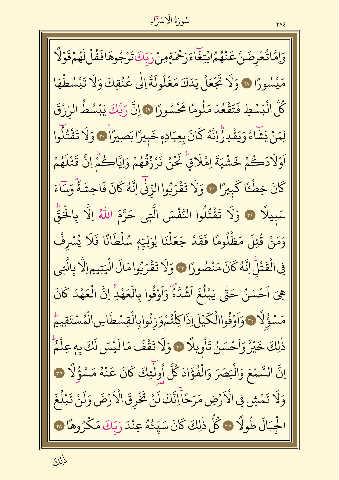 سُورَةُ الْاِسْرَاءِ
٢٨٤
وَاِمَّا تُعْرِضَنَّ عَنْهُمُ ابْتِغَٓاءَ رَحْمَةٍ مِنْ رَبِّكَ تَرْجُوهَا فَقُلْ لَهُمْ قَوْلًا
مَيْسُورًا ﴿٢٨﴾ وَلَا تَجْعَلْ يَدَكَ مَغْلُولَةً اِلٰى عُنُقِكَ وَلَا تَبْسُطْهَا
كُلَّ الْبَسْطِ فَتَقْعُدَ مَلُومًا مَحْسُورًا ﴿٢٩﴾ اِنَّ رَبَّكَ يَبْسُطُ الرِّزْقَ
لِمَنْ يَشَٓاءُ وَيَقْدِرُ اِنَّهُ كَانَ بِعِبَادِهِ خَبِيرًا بَصِيرًا ﴿٣٠﴾ وَلَا تَقْتُلُٓوا
اَوْلَادَكُمْ خَشْيَةَ اِمْلَاقٍ نَحْنُ نَرْزُقُهُمْ وَاِيَّاكُمْ اِنَّ قَتْلَهُمْ
كَانَ خِطْـًٔا كَبِيرًا ﴿٣١﴾ وَلَا تَقْرَبُوا الزِّنٰٓى اِنَّهُ كَانَ فَاحِشَةً وَسَٓاءَ
سَبِيلًا ﴿٣٢﴾ وَلَا تَقْتُلُوا النَّفْسَ الَّتِى حَرَّمَ اللّٰهُ اِلَّا بِالْحَقِّ
وَمَنْ قُتِلَ مَظْلُومًا فَقَدْ جَعَلْنَا لِوَلِيِّهِ سُلْطَانًا فَلَا يُسْرِفْ
فِى الْقَتْلِ اِنَّهُ كَانَ مَنْصُورًا ﴿٣٣﴾ وَلَا تَقْرَبُوا مَالَ الْيَتِيمِ اِلَّا بِالَّتِى
هِىَ اَحْسَنُ حَتّٰى يَبْلُغَ اَشُدَّهُ وَاَوْفُوا بِالْعَهْدِ اِنَّ الْعَهْدَ كَانَ
مَسْؤُلًا ﴿٣٤﴾ وَاَوْفُوا الْكَيْلَ اِذَا كِلْتُمْ وَزِنُوا بِالْقِسْطَاسِ الْمُسْتَقِيمِ
ذٰلِكَ خَيْرٌ وَاَحْسَنُ تَأْوِيلًا ﴿٣٥﴾ وَلَا تَقْفُ مَا لَيْسَ لَكَ بِهِ عِلْمٌ
اِنَّ السَّمْعَ وَالْبَصَرَ وَالْفُؤٰادَ كُلُّ اُولٰٓئِكَ كَانَ عَنْهُ مَسْؤُلًا ﴿٣٦﴾
وَلَا تَمْشِ فِى الْاَرْضِ مَرَحًا اِنَّكَ لَنْ تَخْرِقَ الْاَرْضَ وَلَنْ تَبْلُغَ
الْجِبَالَ طُولًا ﴿٣٧﴾ كُلُّ ذٰلِكَ كَانَ سَيِّئُهُ عِنْدَ رَبِّكَ مَكْرُوهًا ﴿٣٨﴾